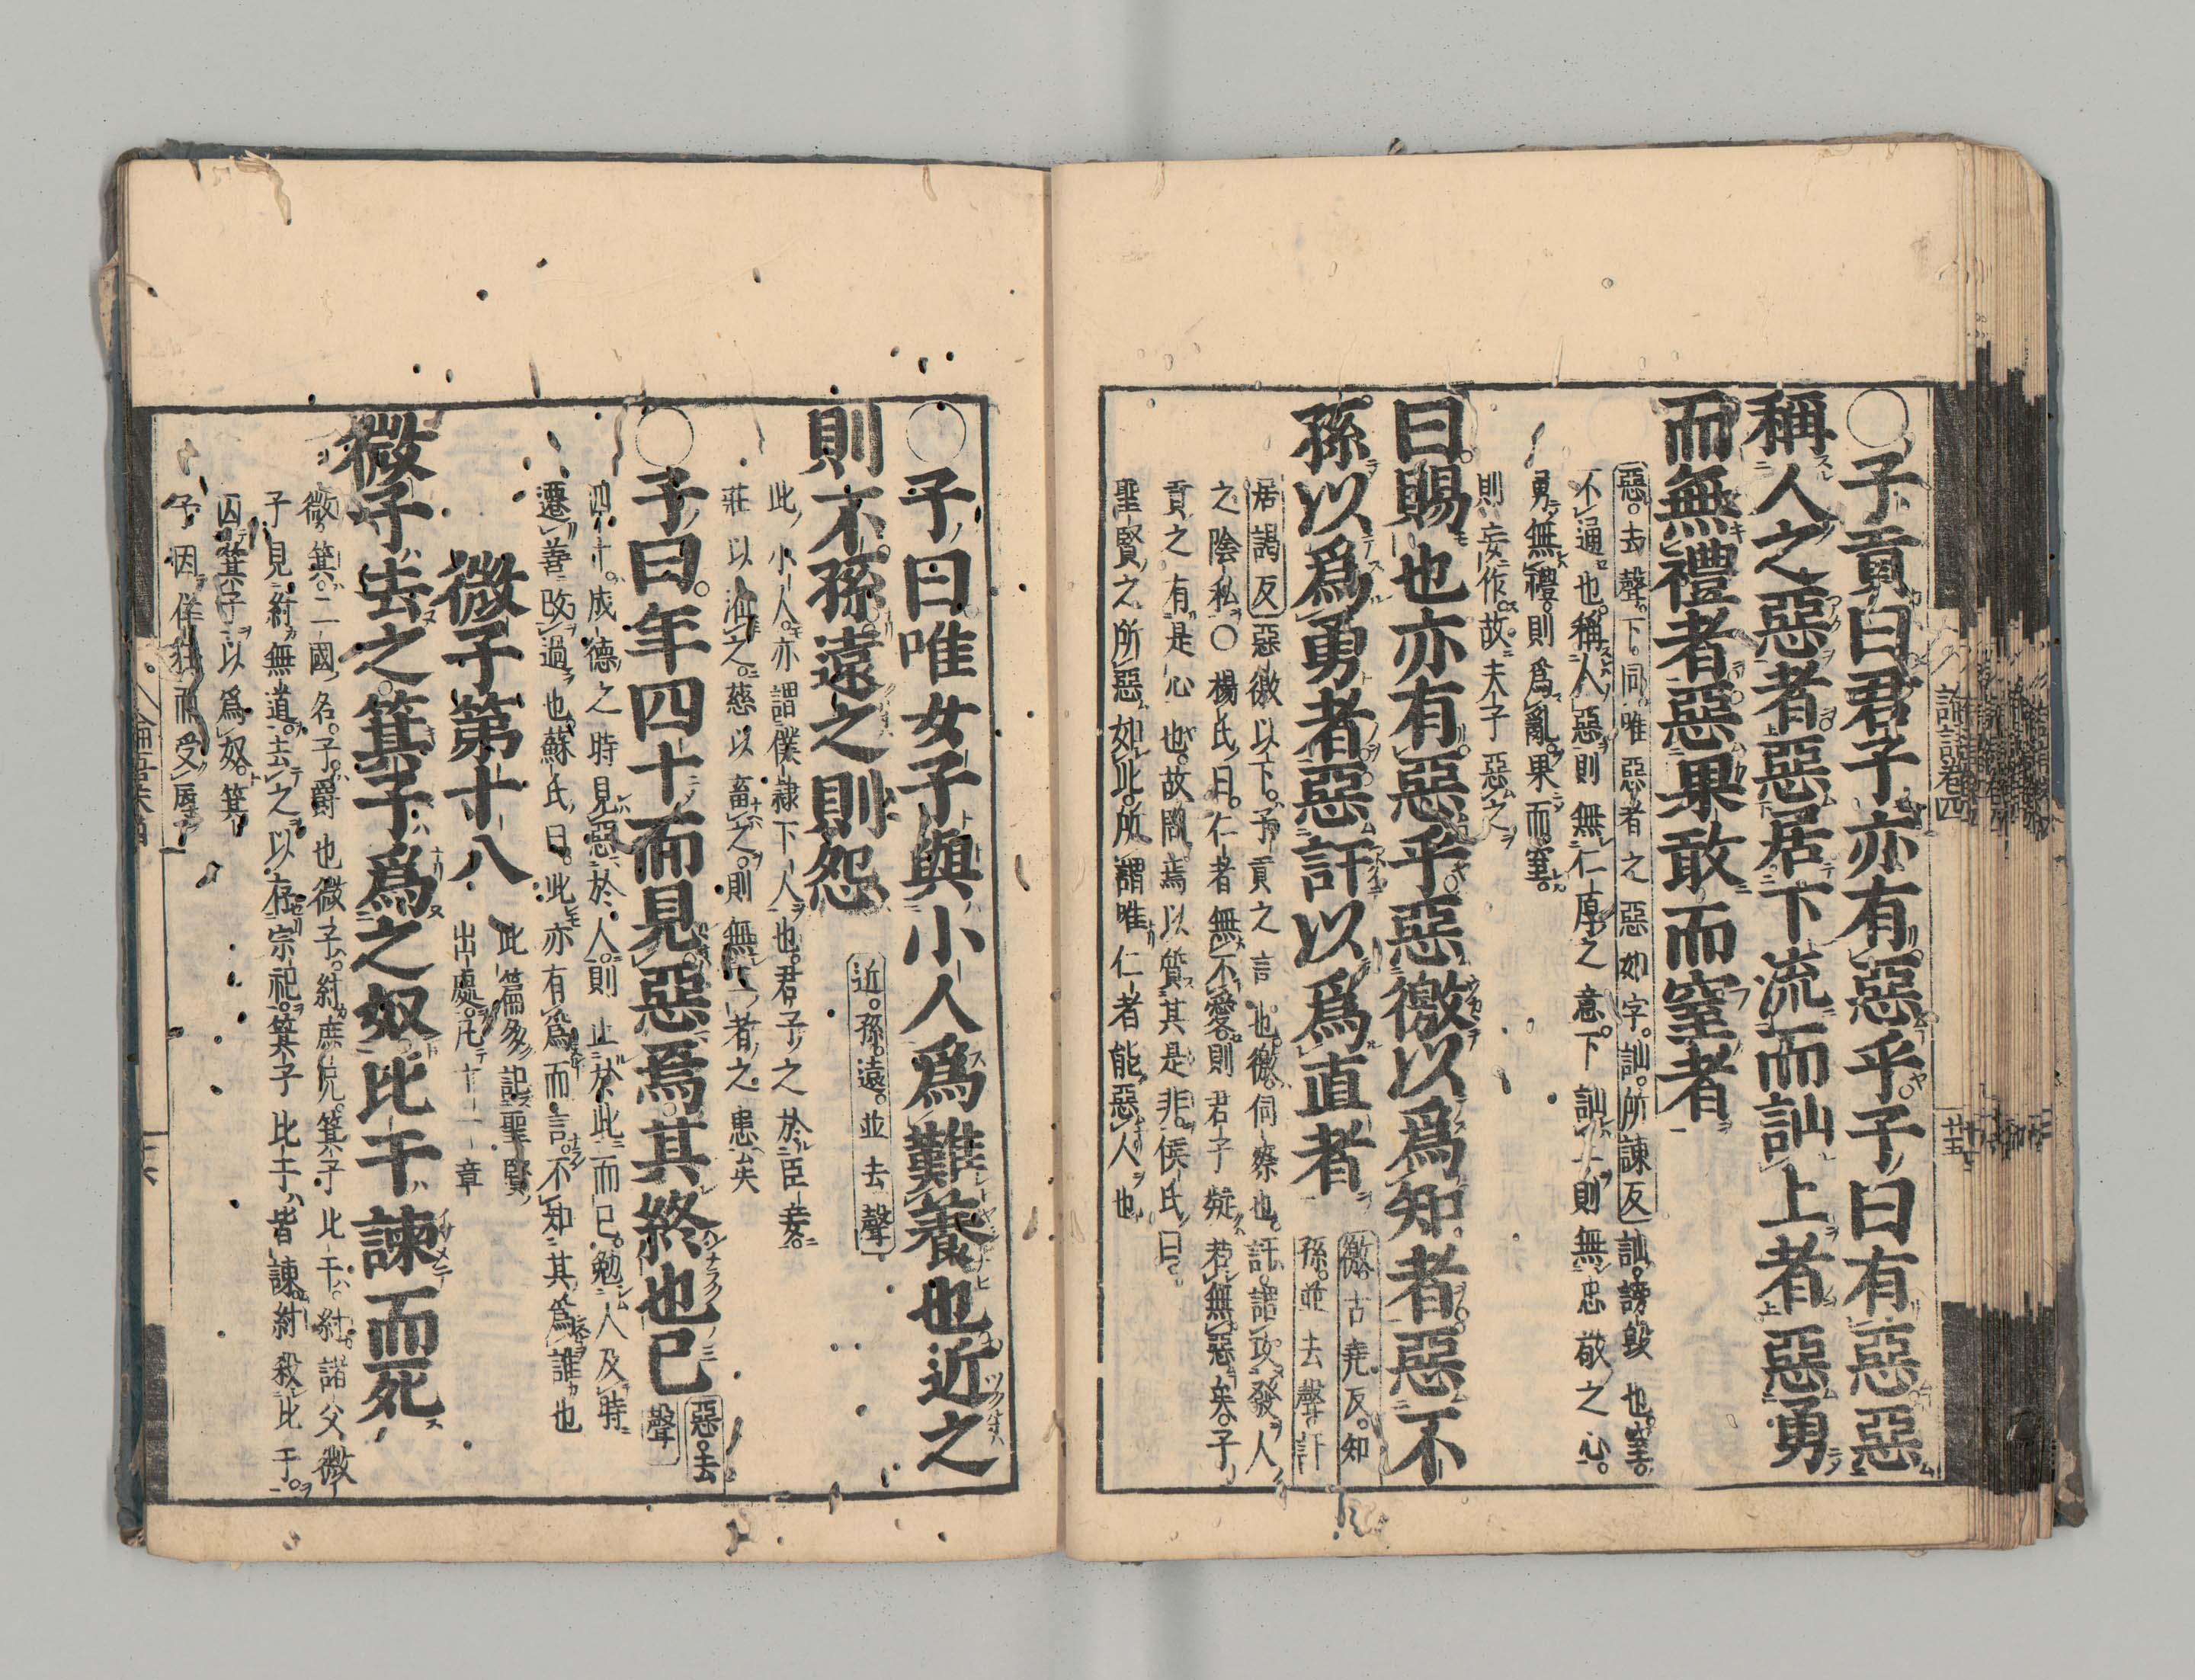 ○子貢曰君子亦有惡乎子曰有惡惡
稱人之惡者惡居下流而訕上者惡勇
而無禮者惡果敢而窒者
惡去聲下同唯惡者之惡如字訕所諫反訕謗毀也窒
不通也稱人惡則無仁厚之意下訕上則無忠敬之心
勇無禮則爲亂果而窒
則妄作故夫子惡之
曰賜也亦有惡乎惡徼以爲知者惡不
孫以爲勇者惡訐以爲直者
徼古堯反知
孫並去聲訐
居謁反惡徼以下子貢之言也徼伺察也訐謂攻發人
之陰私○楊氏曰仁者無不愛則君子疑若無惡矣子
貢之有是心也故問焉以質其是非侯氏曰
聖賢之所惡如此所謂唯仁者能惡人也
論語卷四
廿五
○子曰唯女子與小人爲難養也近之
則不孫遠之則怨
近孫遠並去聲
此小人亦謂僕隷下人也君子之於臣妾
莊以涖之慈以畜之則無二者之患矣
○子曰年四十而見惡焉其終也已
惡去
聲
四十成德之時見惡於人則止於此而已勉人及時
遷善改過也蘇氏曰此亦有爲而言不知其爲誰也
微子第十八
此篇多記聖賢
出處凡十一章
微子去之箕子爲之奴比干諫而死
微箕二國名子爵也微子紂庶兄箕子比干紂諸父微
子見紂無道去之以存宗祀箕子比干皆諫紂殺比干
囚箕子以爲奴箕
子因佯狂而受辱